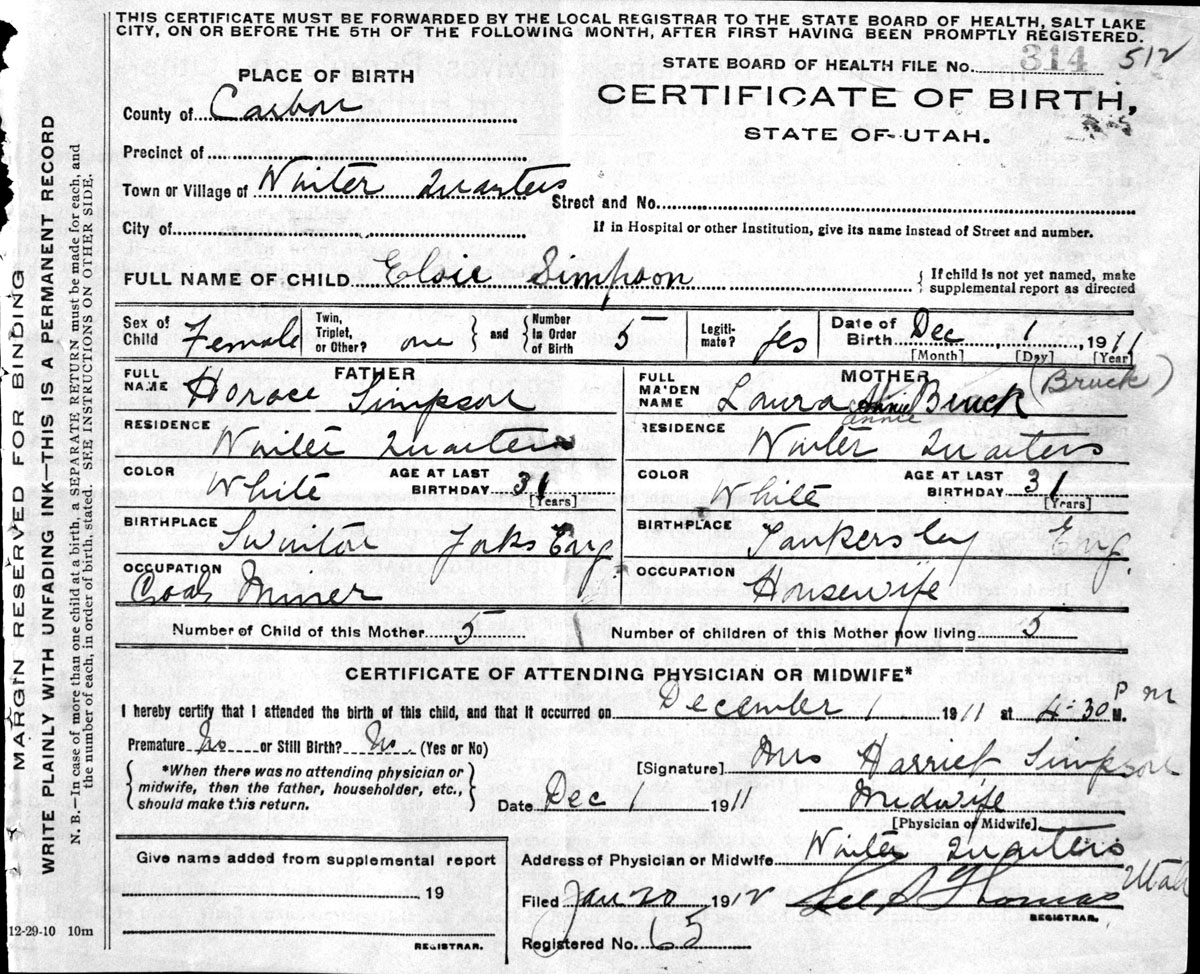 THIS CERTIFICATE MUST BE FORWARDED BY THE LOCAL REGISTRAR TO THE STATE BOARD OF HEALTH, SALT LAKE
CITY, ON OR BEFORE THE 5TH OF THE FOLLOWING MONTH, AFTER FIRST HAVING BEEN PROMPTLY REGISTERED.
STATE BOARD OF HEALTH FILE No. 314 512
PLACE OF BIRTH
CERTIFICATE OF BIRTH,
STATE OF UTAH.
County of Carbon
Precinct of
Town or Village of Winter Quarters
Street and No.
City of
If in Hospital or other Institution, give its name instead of Street and number.
FULL NAME OF CHILD Elsie Simpson
{ If child is not yet named, make
supplemental report as directed
Sex of Child Female
Twin, Triplet, or Other? one } and { Number in Order of Birth 5
Legitimate? yes
Date of Birth Dec 1 1911
[Month] [Day] [Year]
FATHER
FULL NAME Horace Simpson
RESIDENCE Winter Quarters
COLOR White AGE AT LAST BIRTHDAY 31
[Years]
BIRTHPLACE Swinton Yorks Eng
OCCUPATION Coal Miner
MOTHER
FULL MAIDEN NAME Laura Annie Bruck (Bruck)
annie
RESIDENCE Winter Quarters
COLOR White AGE AT LAST BIRTHDAY 31
[Years]
BIRTHPLACE Tankersley Eng.
OCCUPATION Housewife
Number of Child of this Mother 5
Number of children of this Mother now living 5
CERTIFICATE OF ATTENDING PHYSICIAN OR MIDWIFE*
I hereby certify that I attended the birth of this child, and that it occurred on December 1 1911 at 4-30 P M. m
Premature No or Still Birth? No (Yes or No)
{ *When there was no attending physician or
midwife, then the father, householder, etc.,
should make this return. }
[Signature] Mrs Harriet Simpson
Date Dec 1 1911
Midwife
[Physician or Midwife]
Give name added from supplemental report
19
REGISTRAR.
Address of Physician or Midwife Winter Quarters Utah
Filed Jan 20 1912 Thomas
REGISTRAR.
Registered No. 65
MARGIN RESERVED FOR BINDING
WRITE PLAINLY WITH UNFADING INK—THIS IS A PERMANENT RECORD
N. B.—In case of more than one child at a birth, a SEPARATE RETURN must be made for each, and
the number of each, in order of birth, stated. SEE INSTRUCTIONS ON OTHER SIDE.
12-29-10 10m